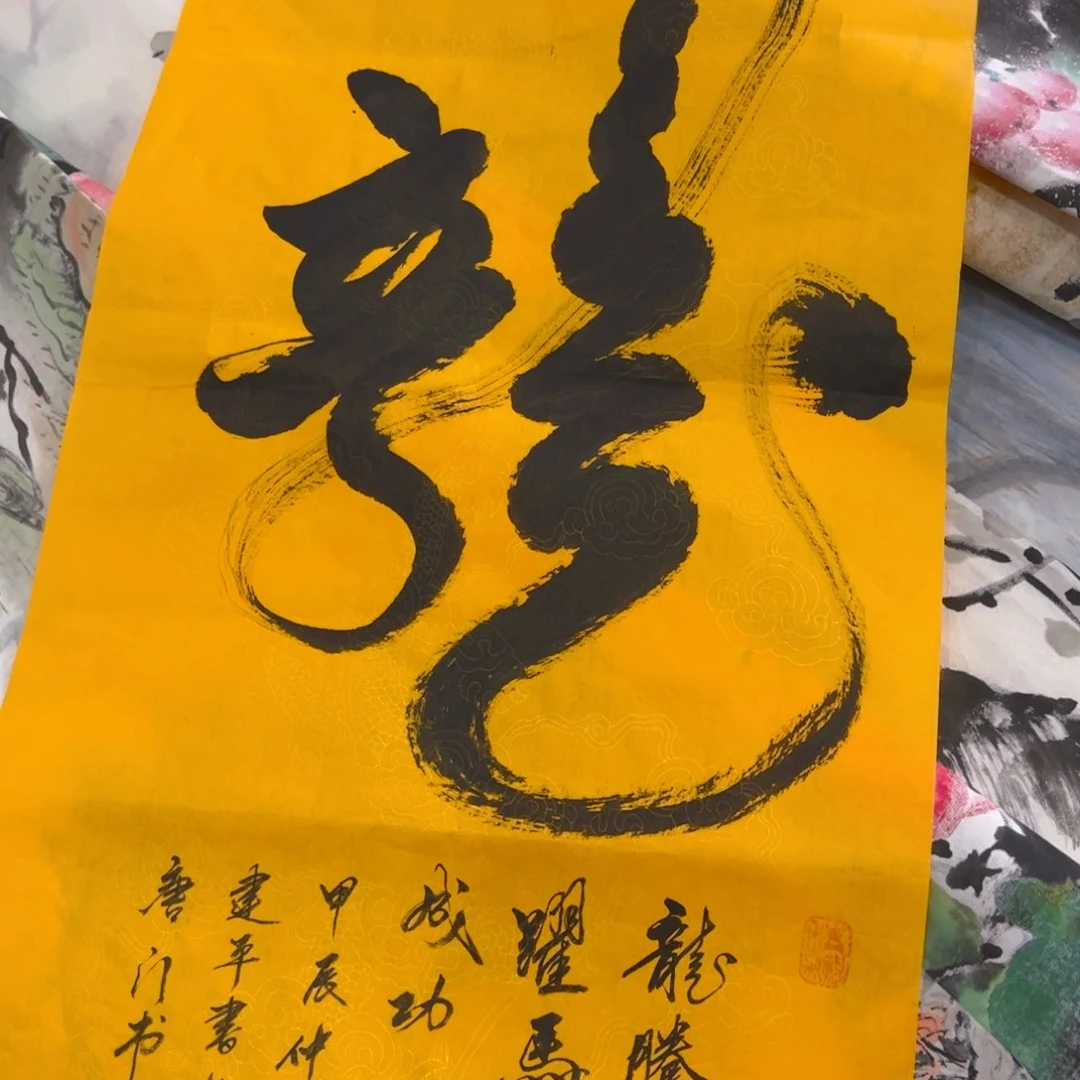 龍
龍騰
躍馬
成功
甲辰仲
建平書
唐门书